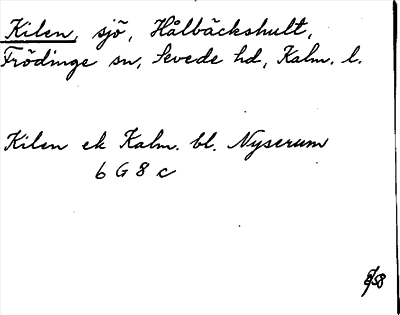 Kilen, sjö, Hålbäckshult,
Frödinge sn, Sevede hd, Kalm. l.
Kilen ek Kalm. bl. Nyserum
6 G 8 c